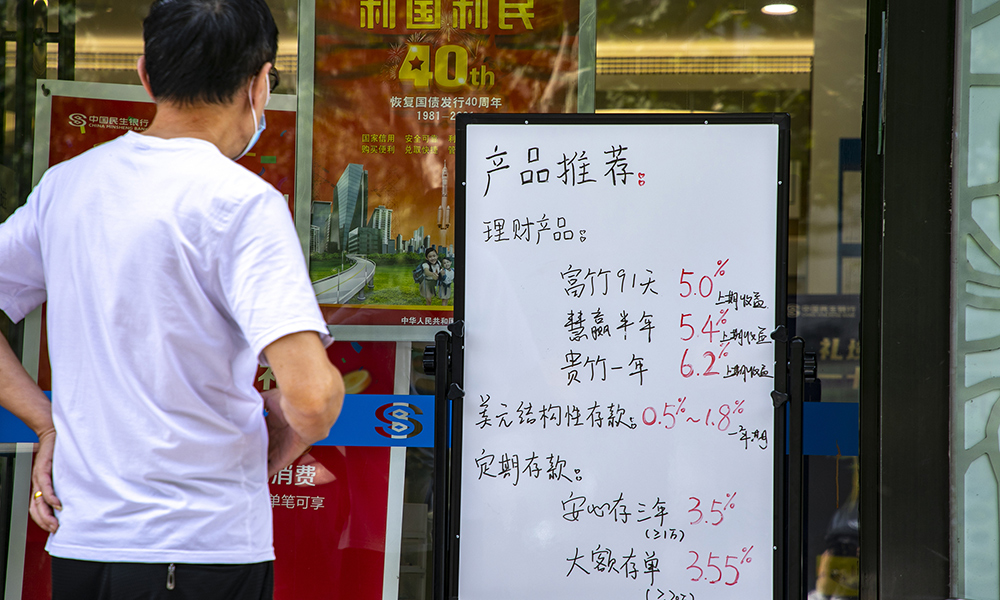 利国利民
40th
恢复国债发行40周年
中国民生银行
CHINA MINSHENG BANK
国家信用 安全可靠
购买便利 兑取快捷
中华人民共和国
消费
单笔可享
中国民生银行
产品推荐:
理财产品:
富竹91天 5.0% 上期收益
慧赢半年 5.4% 上期收益
贵竹一年 6.2% 上期收益
美元结构性存款: 0.5%~1.8% 一年期
定期存款:
安心存三年 3.5%
(≥1万)
大额存单 3.55%